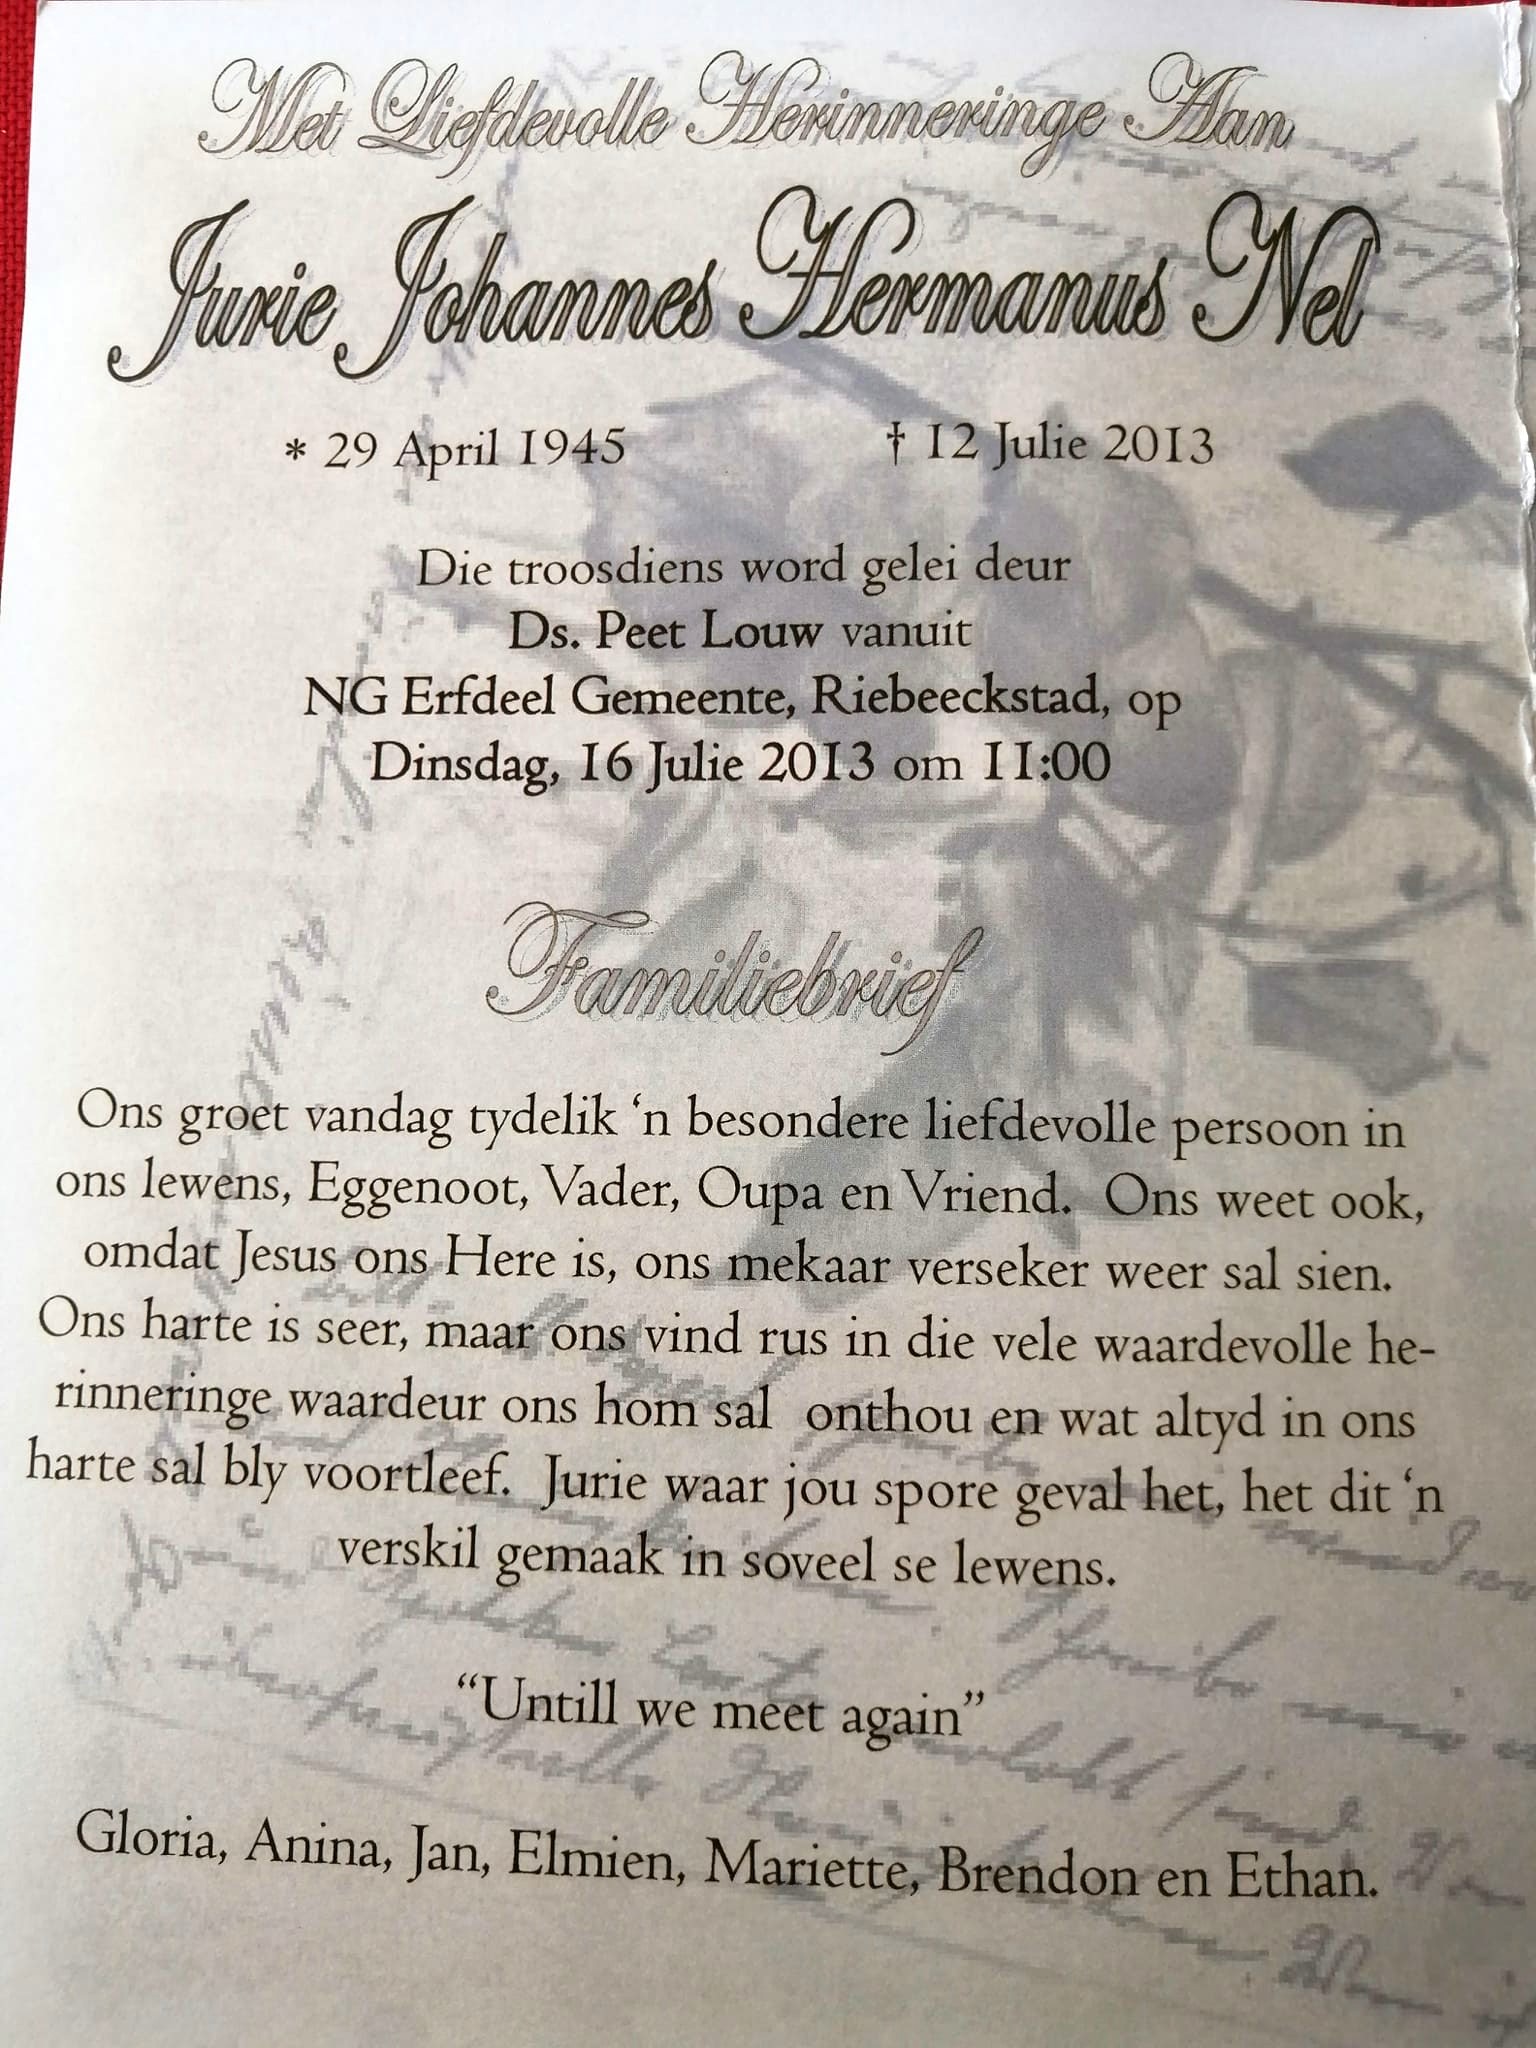 Met Liefdevolle Herinneringe Aan
Jurie Johannes Hermanus Nel
* 29 April 1945 † 12 Julie 2013
Die troosdiens word gelei deur
Ds. Peet Louw vanuit
NG Erfdeel Gemeente, Riebeeckstad, op
Dinsdag, 16 Julie 2013 om 11:00
Familiebrief
Ons groet vandag tydelik ‘n besondere liefdevolle persoon in
ons lewens, Eggenoot, Vader, Oupa en Vriend. Ons weet ook,
omdat Jesus ons Here is, ons mekaar verseker weer sal sien.
Ons harte is seer, maar ons vind rus in die vele waardevolle he-
rinneringe waardeur ons hom sal onthou en wat altyd in ons
harte sal bly voortleef. Jurie waar jou spore geval het, het dit ‘n
verskil gemaak in soveel se lewens.
“Untill we meet again”
Gloria, Anina, Jan, Elmien, Mariette, Brendon en Ethan.